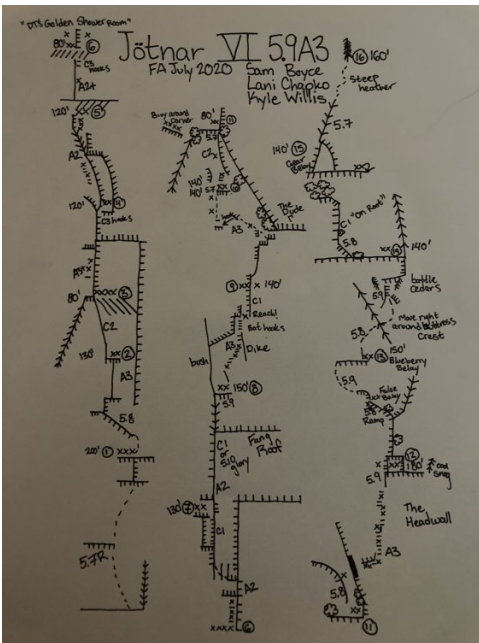 "DT's Golden Shower Room"
Jötnar VI 5.9A3
FA July 2020
Sam Boyce
Lani Chapko
Kyle Willis
80' xx ⑥
C3
hooks
A2+
120' ⑤
A2
④
120'
C3 hooks
A3
80' xxxx ③
C2
130' xx ②
A3
5.8
① xxx
5.7R
Busy around
corner
80' ⑪
C2
140'
5.7
A3
hook
The
Dude
⑨ xx 140'
C1
Reach!
Bat hooks
A3
Dike
bush
xx 150' ⑧
5.9
C1
or
5.10
glory
Fang
Roof
A2
130' ⑦ xx
C1
A2
xxxx ⑥
⑯ 160'
Steep
heather
5.7
140' ⑮
Gear
Belay
C1 "On Root"
5.8
xx ⑭
140'
battle
cedars
5.9
Move right
around buttress
crest
5.8
150'
xx ⑬
Blueberry
Belay
5.9
False
Belay
5.8
Ramp
⑫
xx 180'
snag
5.9
The
Headwall
A3
5.8
⑪